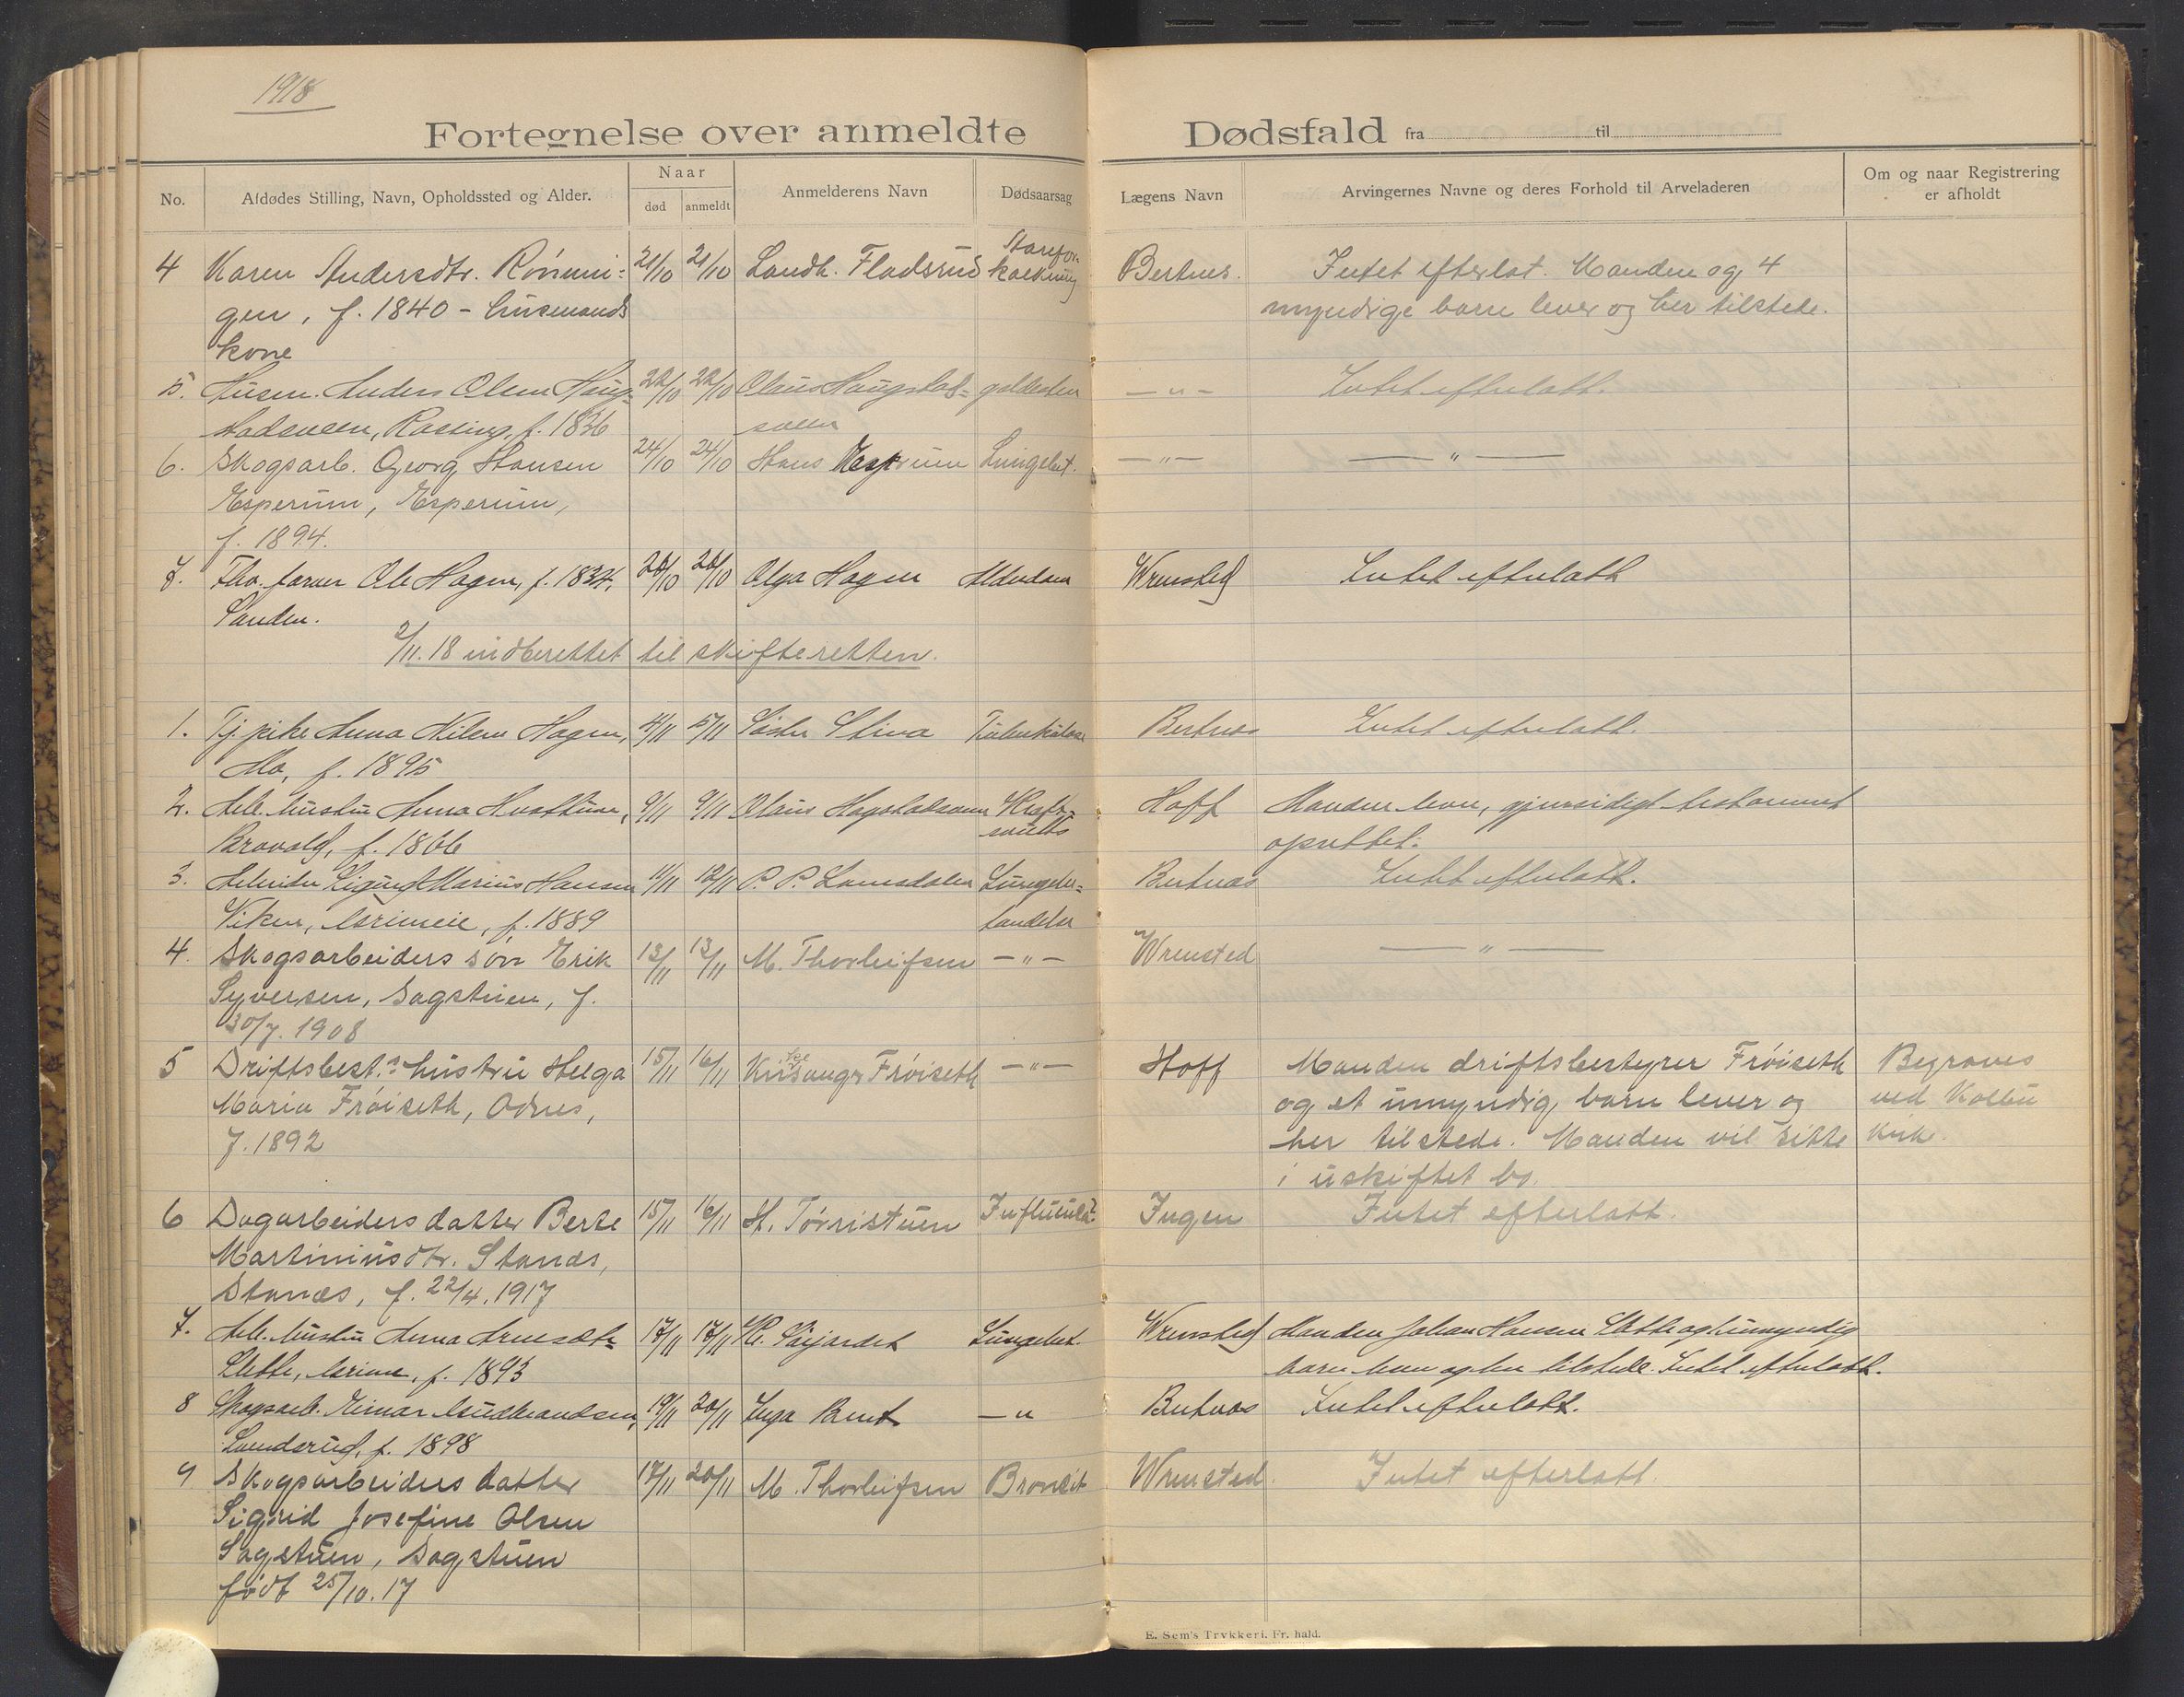 1918
Fortegnelse over anmeldte Dødsfald fra til
No. Afdødes Stilling, Navn, Opholdssted og Alder. Naar død anmeldt Anmelderens Navn Dødsaarsag Lægens Navn Arvingernes Navne og deres Forhold til Arveladeren Om og naar Registrering er afholdt
4 Karen Andersdtr. Rønni- 21/10 21/10 Landh. Fladsrud Aarefor- Bertnes. Intet efterlat. Manden og 4
gen, f. 1840 - husmands kalkning myndige barn lever og her tilstede.
kone
5. Husm. Anders Olsen Haug- 22/10 22/10 Olaus Haugstad- galdesten -"- Intet efterlatt.
stadsveen, f. 1836
6. Skogsarb. Georg Hansen 24/10 24/10 Hans Lungebet. -"- -"-
Esperum, Esperum,
f. 1894.
7. Fho. farver Ole Hagen, f. 1834, 28/10 28/10 Olga Hagen Alderdom Wrensted Intet efterlatt
Sanden.
2/11.18 indberettet til skifteretten.
1. Tj. pike Anna Nilsen Hagen, 4/11 5/11 Søster Stina Tuberkulose Bertnes Intet efterlatt.
Mo, f. 1895
2. Arb. hustru Anna 9/11 9/11 Olaus Kræft- Hoff Manden lever, gjensidigt testament
Bravold, f. 1866 svulst oprettet.
3. Arbeider Sigurd Marius Hansen 11/11 12/11 P. P. Lomsdalen Lungebe- Bertnes Intet efterlatt.
Viken, f. 1889 tændelse
4. Skogsarbeiders søn Erik 13/11 13/11 M. Thorleifsen -"- Wrensted -"-
Syversen, Sagstuen, f.
30/7. 1908
5 Driftsbest.s hustru Helga 15/11 16/11 Frøiseth -"- Hoff Manden driftsbestyrer Frøiseth Begraves
Maria Frøiseth, Odnes, og et umyndig barn lever og ved Kolbu
f. 1892 her tilstede. Manden vil sitte kirke.
i uskiftet bo.
6 Dagarbeiders datter Berte 15/11 16/11 H. Tørristuen Ingen Intet efterlatt.
Martiniusdtr. Stanæs,
Stanæs, f. 22/4. 1917
7. Arb. hustru Anna 17/11 17/11 Lungebet. Wrensted Manden Johan Hansen Slette og umyndig
Slette, f. 1893 barn lever og her tilstede. Intet efterlatt.
8 Skogsarb. Einar Gudbrandsen, 19/11 20/11 Inga -" Bertnes Intet efterlatt.
Lundsrud, f. 1898
9 Skogsarbeiders datter 17/11 20/11 M. Thorleifsen Bronkit Wrensted. Intet efterlatt.
Sigrid Josefine Olsen
Sagstuen, Sagstuen
født 25/10.17
E. Sem's Trykkeri. Fr. hald.